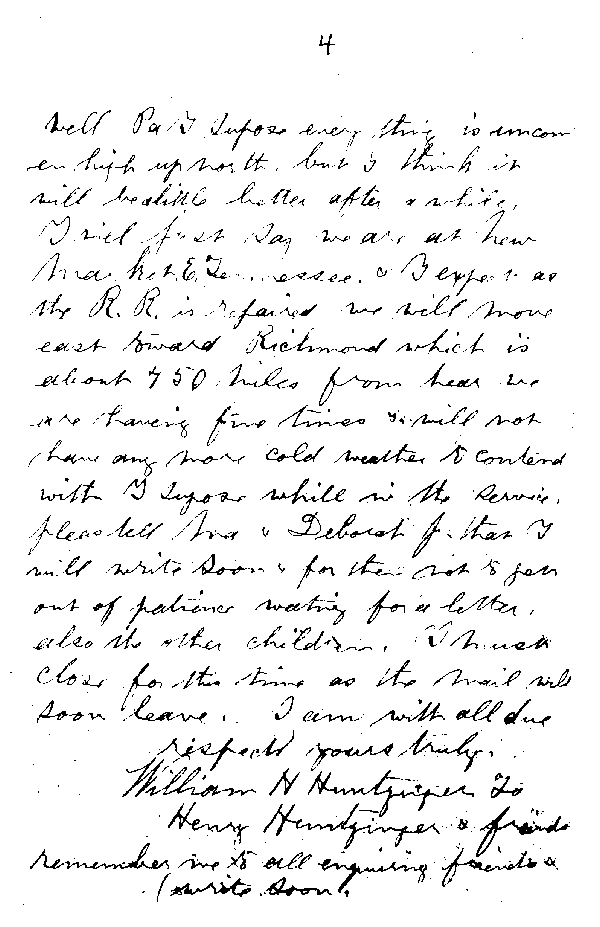 4
Well Pa I Supose every thing is uncom
en high up north. but I think it
will be alittle better after a while.
I will just say we are at New
Market E. Tennessee. & I expect as
the R. R. is repaired we will move
east toward Richmond which is
about 450 Miles from hear we
are having fine times & will not
have any more cold weather to contend
with I supose whill in the service.
pleas tell Ma & Deborah J. that I
will write soon & for them not to get
out of patience wating for a letter.
also the other children. I must
close for this time as the mail will
soon leave. I am with all due
respects yours truly.
William H Huntzinger To
Henry Huntzinger & friends
remember me to all enquiring friends &
(write soon.